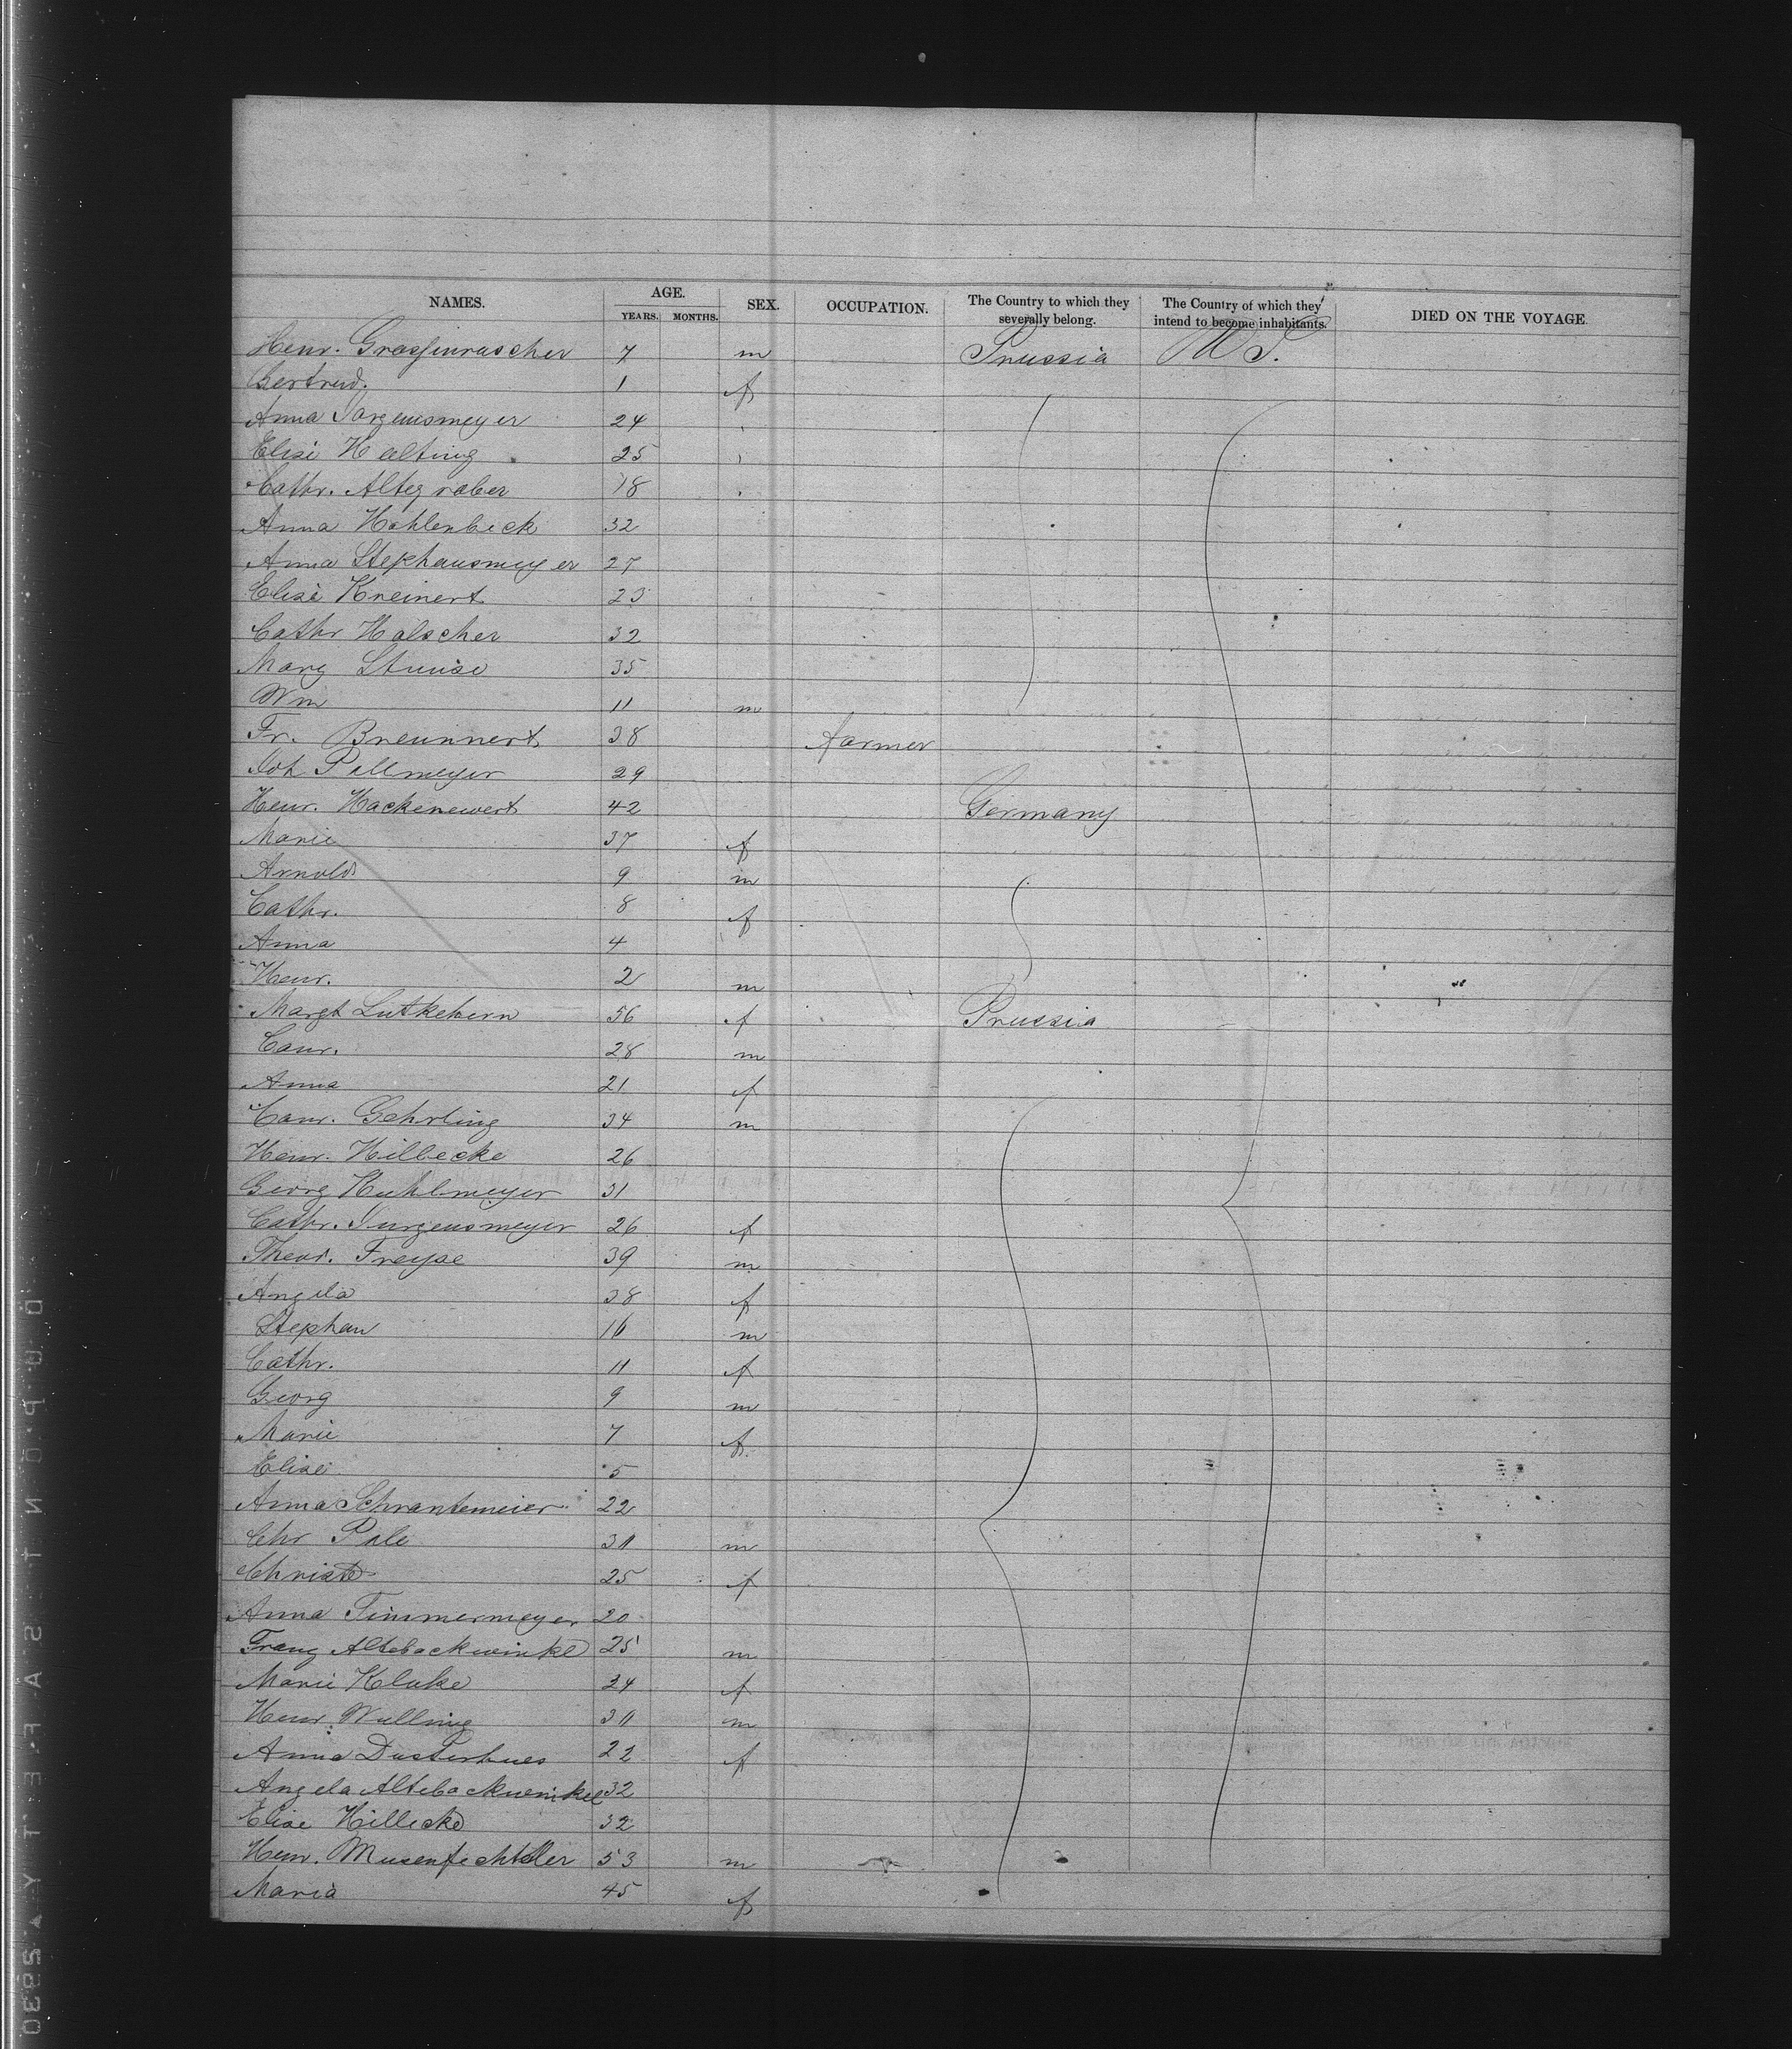 NAMES. AGE. YEARS. MONTHS. SEX. OCCUPATION. The Country to which they severally belong. The Country of which they intend to become inhabitants. DIED ON THE VOYAGE
Henr. 7 m Prussia U S.
Gertrud. 1 f
Anna Jorgensmeyer 24
Elise Halting 25
Cathr. Altegraber 18
Anna Hohlenbeck 32
Anna Stephansmeyer 27
Elise Kreinert 23
Cathr Holscher 32
Marg Stuuse 35
Wm 11 m
Fr. Breunnert 38 farmer
Joh Pellmeyer 29
Henr. Hackenewert 42 Germany
Marie 37 f
Arnold 9 m
Cathr. 8 f
Anna 4
Henr. 2 m
Margt Lutkebern 56 f Prussia
Conr. 28 m
Anna 21 f
Conr. Gehrling 34 m
Henr. Hillecke 26
Georg Kuhlmeyer 31
Cathr. Jurgensmeyer 26 f
Theod. Freyse 39 m
Angela 38 f
Stephan 16 m
Cathr. 11 f
Georg 9 m
Marie 7 f
Elise 5
Anna Schrantemeier 22
Chr Pole 30 m
Christ 25 f
Anna Timmermeyer 20
Franz Altebockwinkel 25 m
Marie Kluke 24 f
Henr. Wulling 30 m
Anna Dusterhues 22 f
Angela Altebockwinkel 32
Elise Hillecke 32
Henr. Musenfechteller 53 m
Maria 45 f